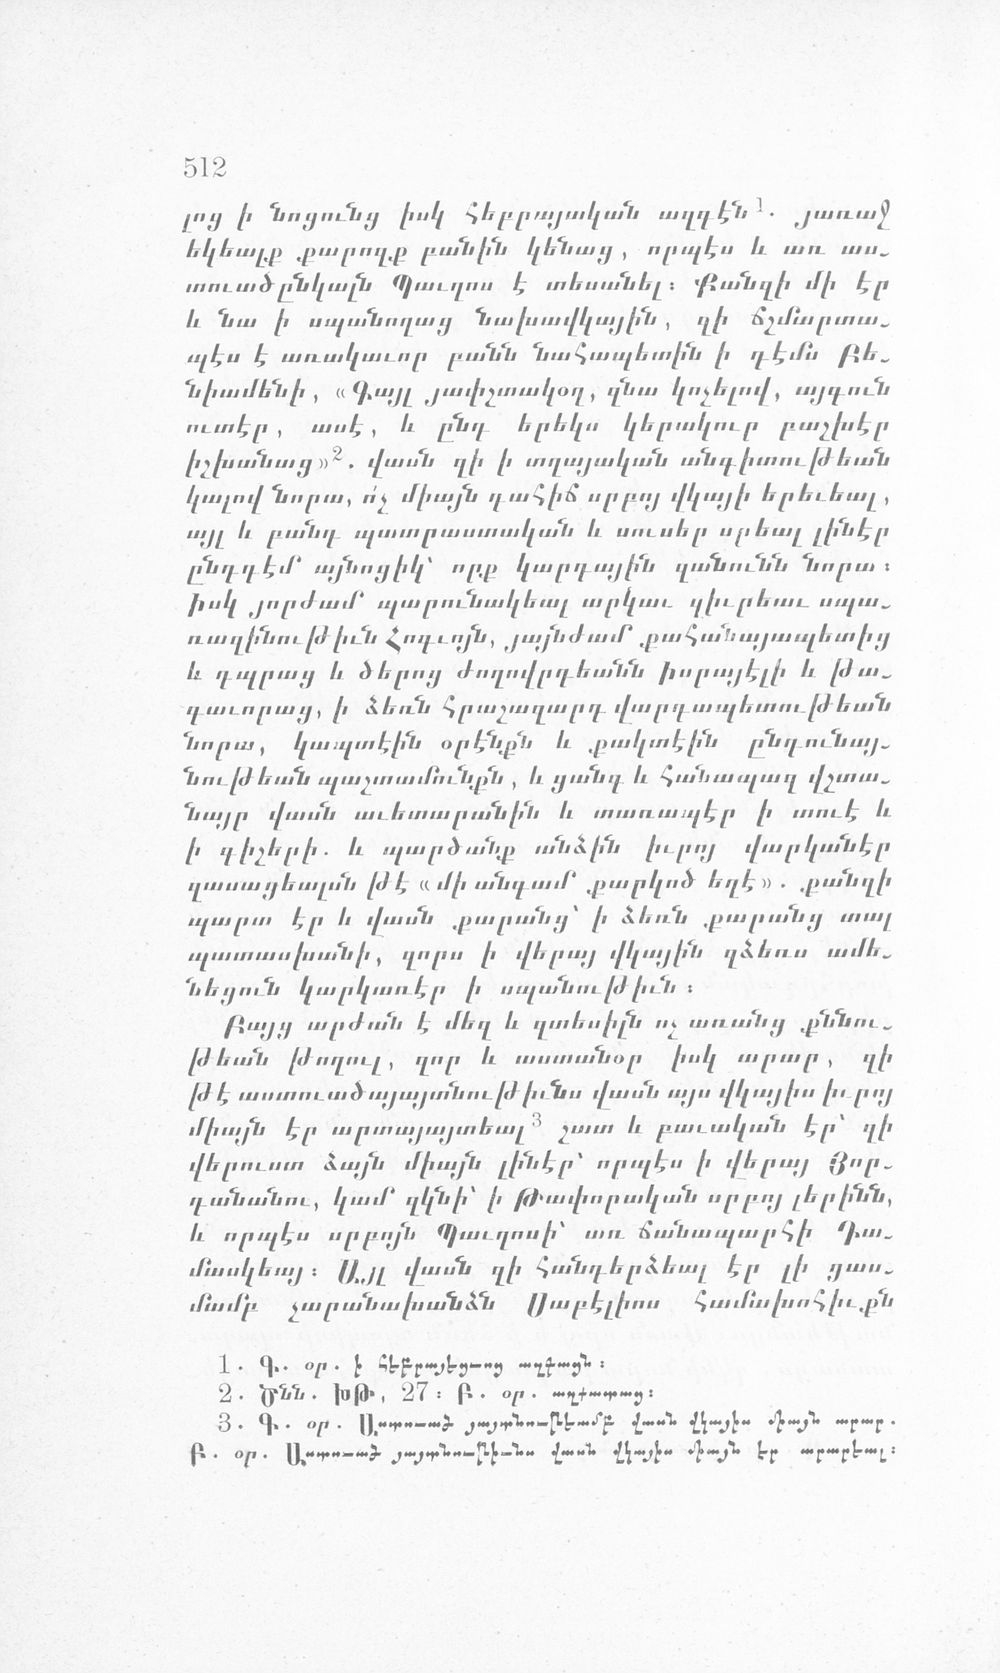 512
լոց ի նոցունց իսկ Հեբրայական ազգէն 1. յառաջ
եկեալք քարողք բանին կենաց, որպէս և առ աս֊
տուածընկալն Պաւղոս է տեսանել։ Քանզի մի էր
և նա ի սպանողաց նախավկային, զի ճշմարտա֊
պէս է առակաւոր բանն նահապետին ի դէմս Բե֊
նիամենի, «Գայլ յափշտակօղ, զնա կոչելով, այգուն
ուտէր, ասէ, և ընդ երեկս կերակուր բաշխէր
իշխանաց»2. վասն զի ի տղայական անգիտութեան
կալով նորա, ո՛չ միայն դահիճ սրբոյ վկայի երեւեալ,
այլ և բանդ պատրաստական և սուսեր սրեալ լինէր
ընդդէմ այնոցիկ՝ որք կարդային զանունն նորա։
Իսկ յորժամ պարունակեալ արկաւ զիւրեաւ սպա֊
ռազինութիւն Հոգւոյն, յայնժամ քահանայապետից
և դպրաց և ծերոց ժողովրդեանն Իսրայէլի և թա֊
գաւորաց, ի ձեռն հրաշազարդ վարդապետութեան
նորա, կապտէին օրէնքն և քակտէին ընդունայ֊
նութեան պաշտամունքն, և ցանգ և հանապազ վշտա֊
նայր վասն աւետարանին և տառապէր ի տուէ և
ի գիշերի. և պարծանք անձին իւրոյ վարկանէր
զասացեալսն թէ «մի անգամ քարկոծ եղէ». քանզի
պարտ էր և վասն քարանց՝ ի ձեռն քարանց տալ
պատասխանի, զորս ի վերայ վկային զձեռս ամե֊
նեցուն կարկառէր ի սպանութիւն։
Բայց արժան է մեզ և զտեսիլն ոչ առանց քննու֊
թեան թողուլ, զոր և աստանօր իսկ արար, զի
թէ աստուածայայտնութիւնս վասն այս վկայիս իւրոյ
միայն էր արտայայտեալ 3 շատ և բաւական էր՝ զի
վերուստ ձայն միայն լինէր՝ որպէս ի վերայ Յոր֊
դանանու, կամ զկնի՝ ի Թափորական սրբոյ լերինն,
և որպէս սրբոյն Պաւղոսի՝ առ ճանապարհի Դա֊
մասկեայ։ Այլ վասն զի հանդերձեալ էր լի ցաս֊
մամբ չարանախանձն Սաբէլիոս համախոհիւքն
1. Գ. օր. ի հեբրայեցւոց ազգացն։
2. Ծնն. ԽԹ, 27։ Բ. օր. ազգապաց։
3. Գ. օր. Աստուած յայտնութեամբ վասն վկայիս միայն արար.
Բ. օր. Աստուած յայտնութիւնս վասն վկայիս միայն էր արարեալ։